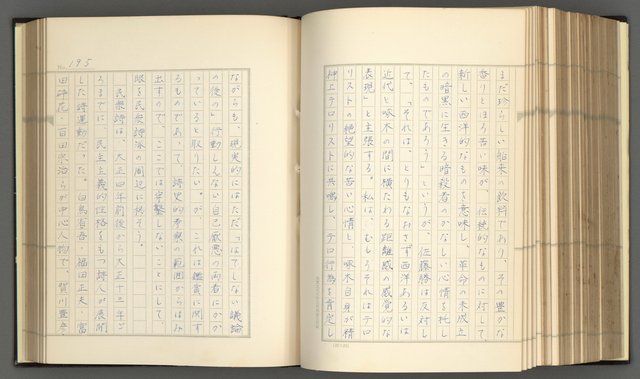 まだ珍らしい舶来の飲料であり、その豊かな
香りとほろ苦い味が、伝統的なものに対して
新しい西洋的なものを意味し、革命の未成立
の暗黒に生きる暗殺者のかなしい心情を托し
たものであろう」というが、佐藤勝は反対し
て、「それは、とりもなおさず西洋あるいは
近代と啄木の間に横たわる距離感の感覚的な
表現」と主張する。私は、むしろそれはテロ
リストの絶望的な苦い心情と、啄木自身が精
神上テロリストに共鳴し、テロ行為を肯定し
No. 195
ながらも、現実的にはただ「はてしない議論
の後の」行動しえない自己嫌悪の両者にかか
っていると取りたい。が、これは鑑賞に関す
るものであって、詩史的考察の範囲からはみ
出すので、ここでは穿鑿しないことにして、
眼を民衆詩派の周辺に移そう。
民衆詩は、大正四年前後から大正十三年ご
ろまでに、民主主義的性格をもつ詩人が展開
した詩運動だった。白鳥省吾、福田正夫、富
田砕花、百田宗治らが中心人物で、賀川豊彦